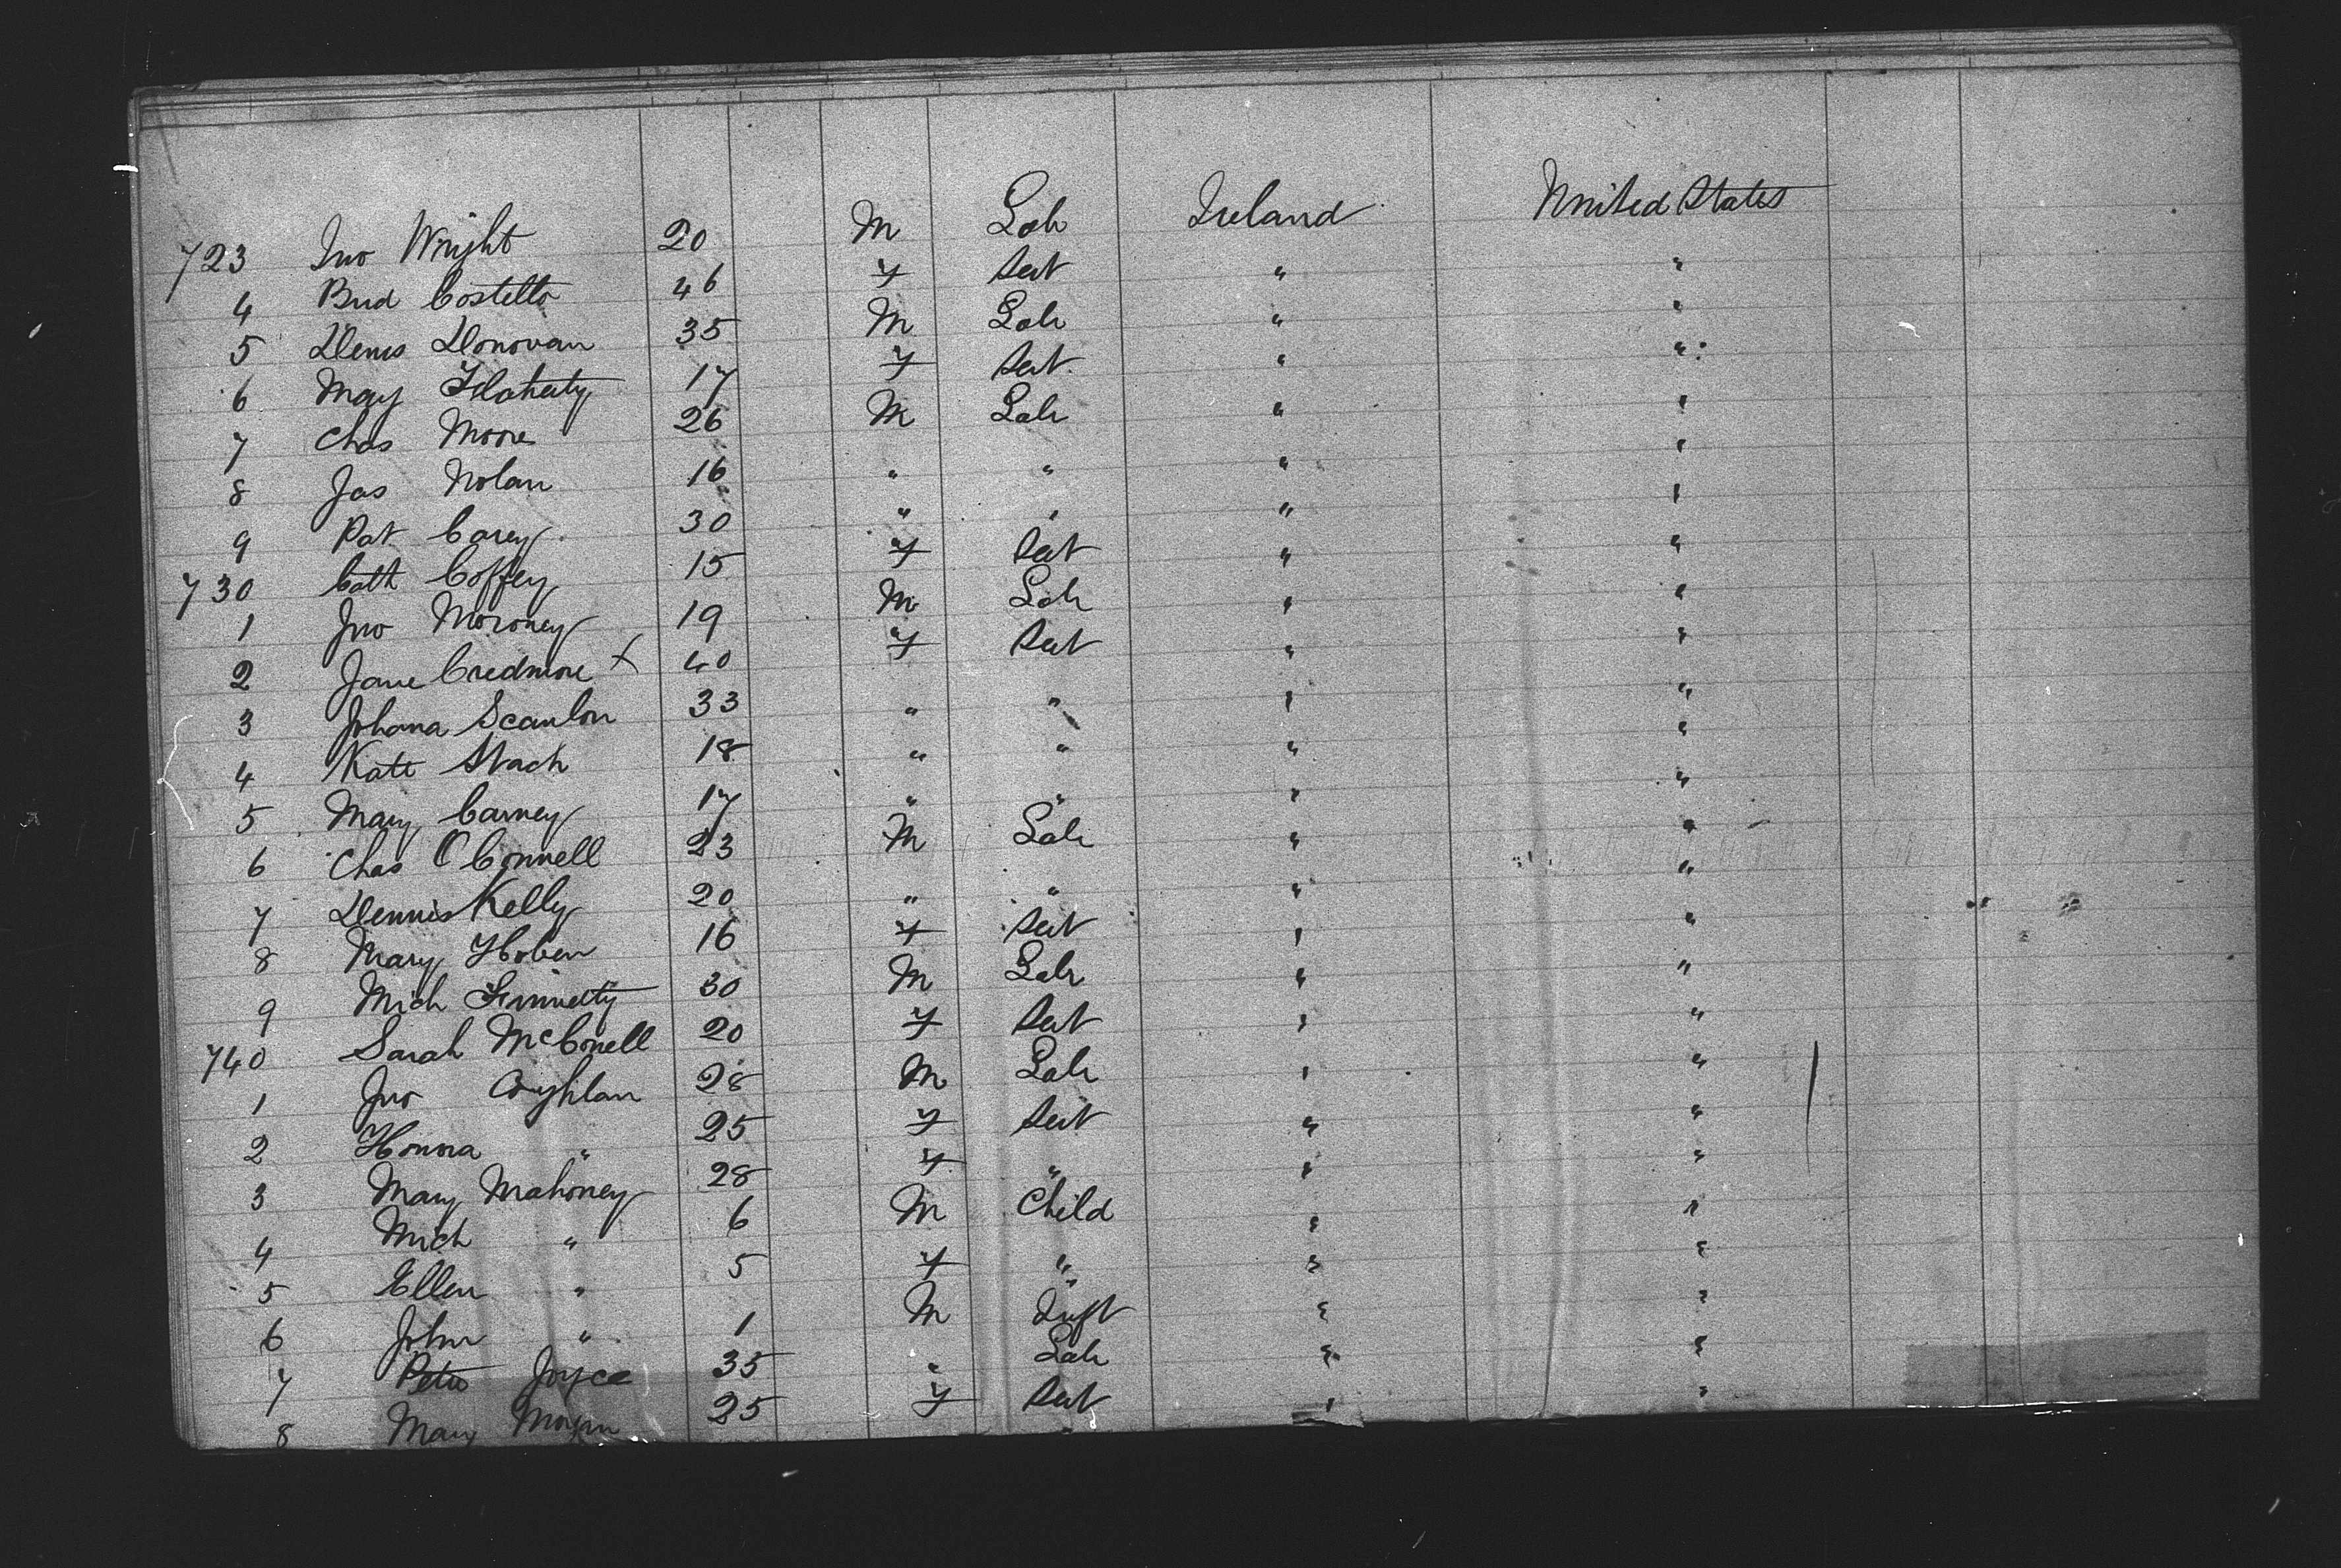 723 Jno Wright 20 M Lab Ireland United States
4 Brid Costello 46 F Sert " "
5 Denis Donovan 35 M Lab " "
6 May Flaherty 17 F Sert " "
7 Chas Moore 26 M Lab " "
8 Jas Nolan 16 " " " "
9 Pat Carey 30 " " " "
730 Cath Coffey 15 F Sert " "
1 Jno Moroney 19 M Lab " "
2 Jane Credmore X 40 F Sert " "
3 Johana Scanlon 33 " " " "
4 Kate Stack 18 " " " "
5 Mary Carney 17 " " " "
6 Chas O'Connell 23 M Lab " "
7 Dennis Kelly 20 " " " "
8 Mary Hoben 16 F Sert " "
9 Mich Finnetty 30 M Lab " "
740 Sarah McConell 20 F Sert " "
1 Jno Coughlan 28 M Lab " "
2 Honora " 25 F Sert " "
3 Mary Mahoney 28 F " " "
4 Mich " 6 M Child " "
5 Ellen " 5 F " " "
6 John " 1 M Inft " "
7 Peter Joyce 35 " Lab " "
8 Mary 25 F Sert " "